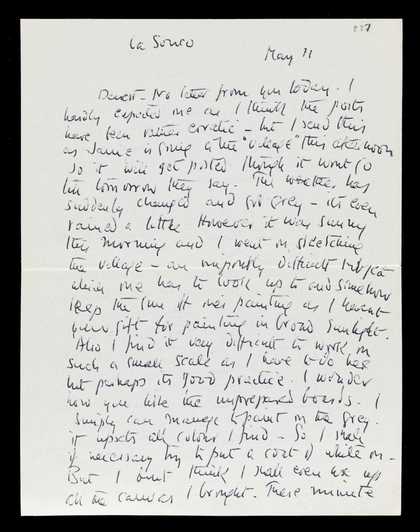 237
La Souco
May 11
Dearest - No letter from you today. I
hardly expected one as I think the posts
have been rather erratic - but I send this
as Janie is going to the "village" this afternoon
so it will get posted though it wont go
till tomorrow they say. The weather has
suddenly changed and got grey - its even
rained a little However it was sunny
this morning and I went on sketching
the village - an impossibly difficult subject
which one has to look up to and somehow
keep the sun off ones painting as I havent
your gift for painting in broad sunlight.
Also I find it very difficult to work on
such a small scale as I have to do here
but perhaps its good practice. I wonder
how you like the unprepared boards. I
simply can manage to paint on the grey.
it upsets all colour I find - So I shall
if necessary try to put a coat of white on -
But I dont think I shall even use up
all the canvas I brought. These minute